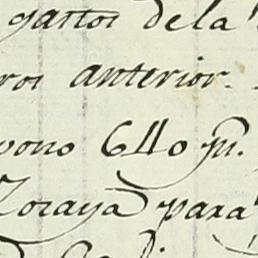 gastos dela
ros anterior.
vono 640 m.
Zoraya para